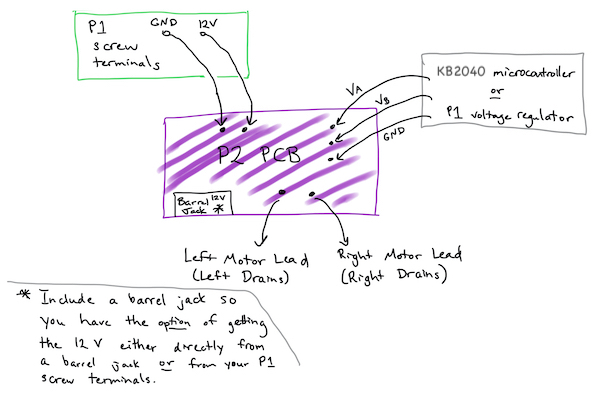 P1
screw
terminals
GND
12V
KB2040 microcontroller
or
P1 voltage regulator
VA
VB
GND
P2 PCB
Barrel 12V
Jack *
Left Motor Lead
(Left Drains)
Right Motor Lead
(Right Drains)
* Include a barrel jack so
you have the option of getting
the 12 V either directly from
a barrel jack or from your P1
screw terminals.